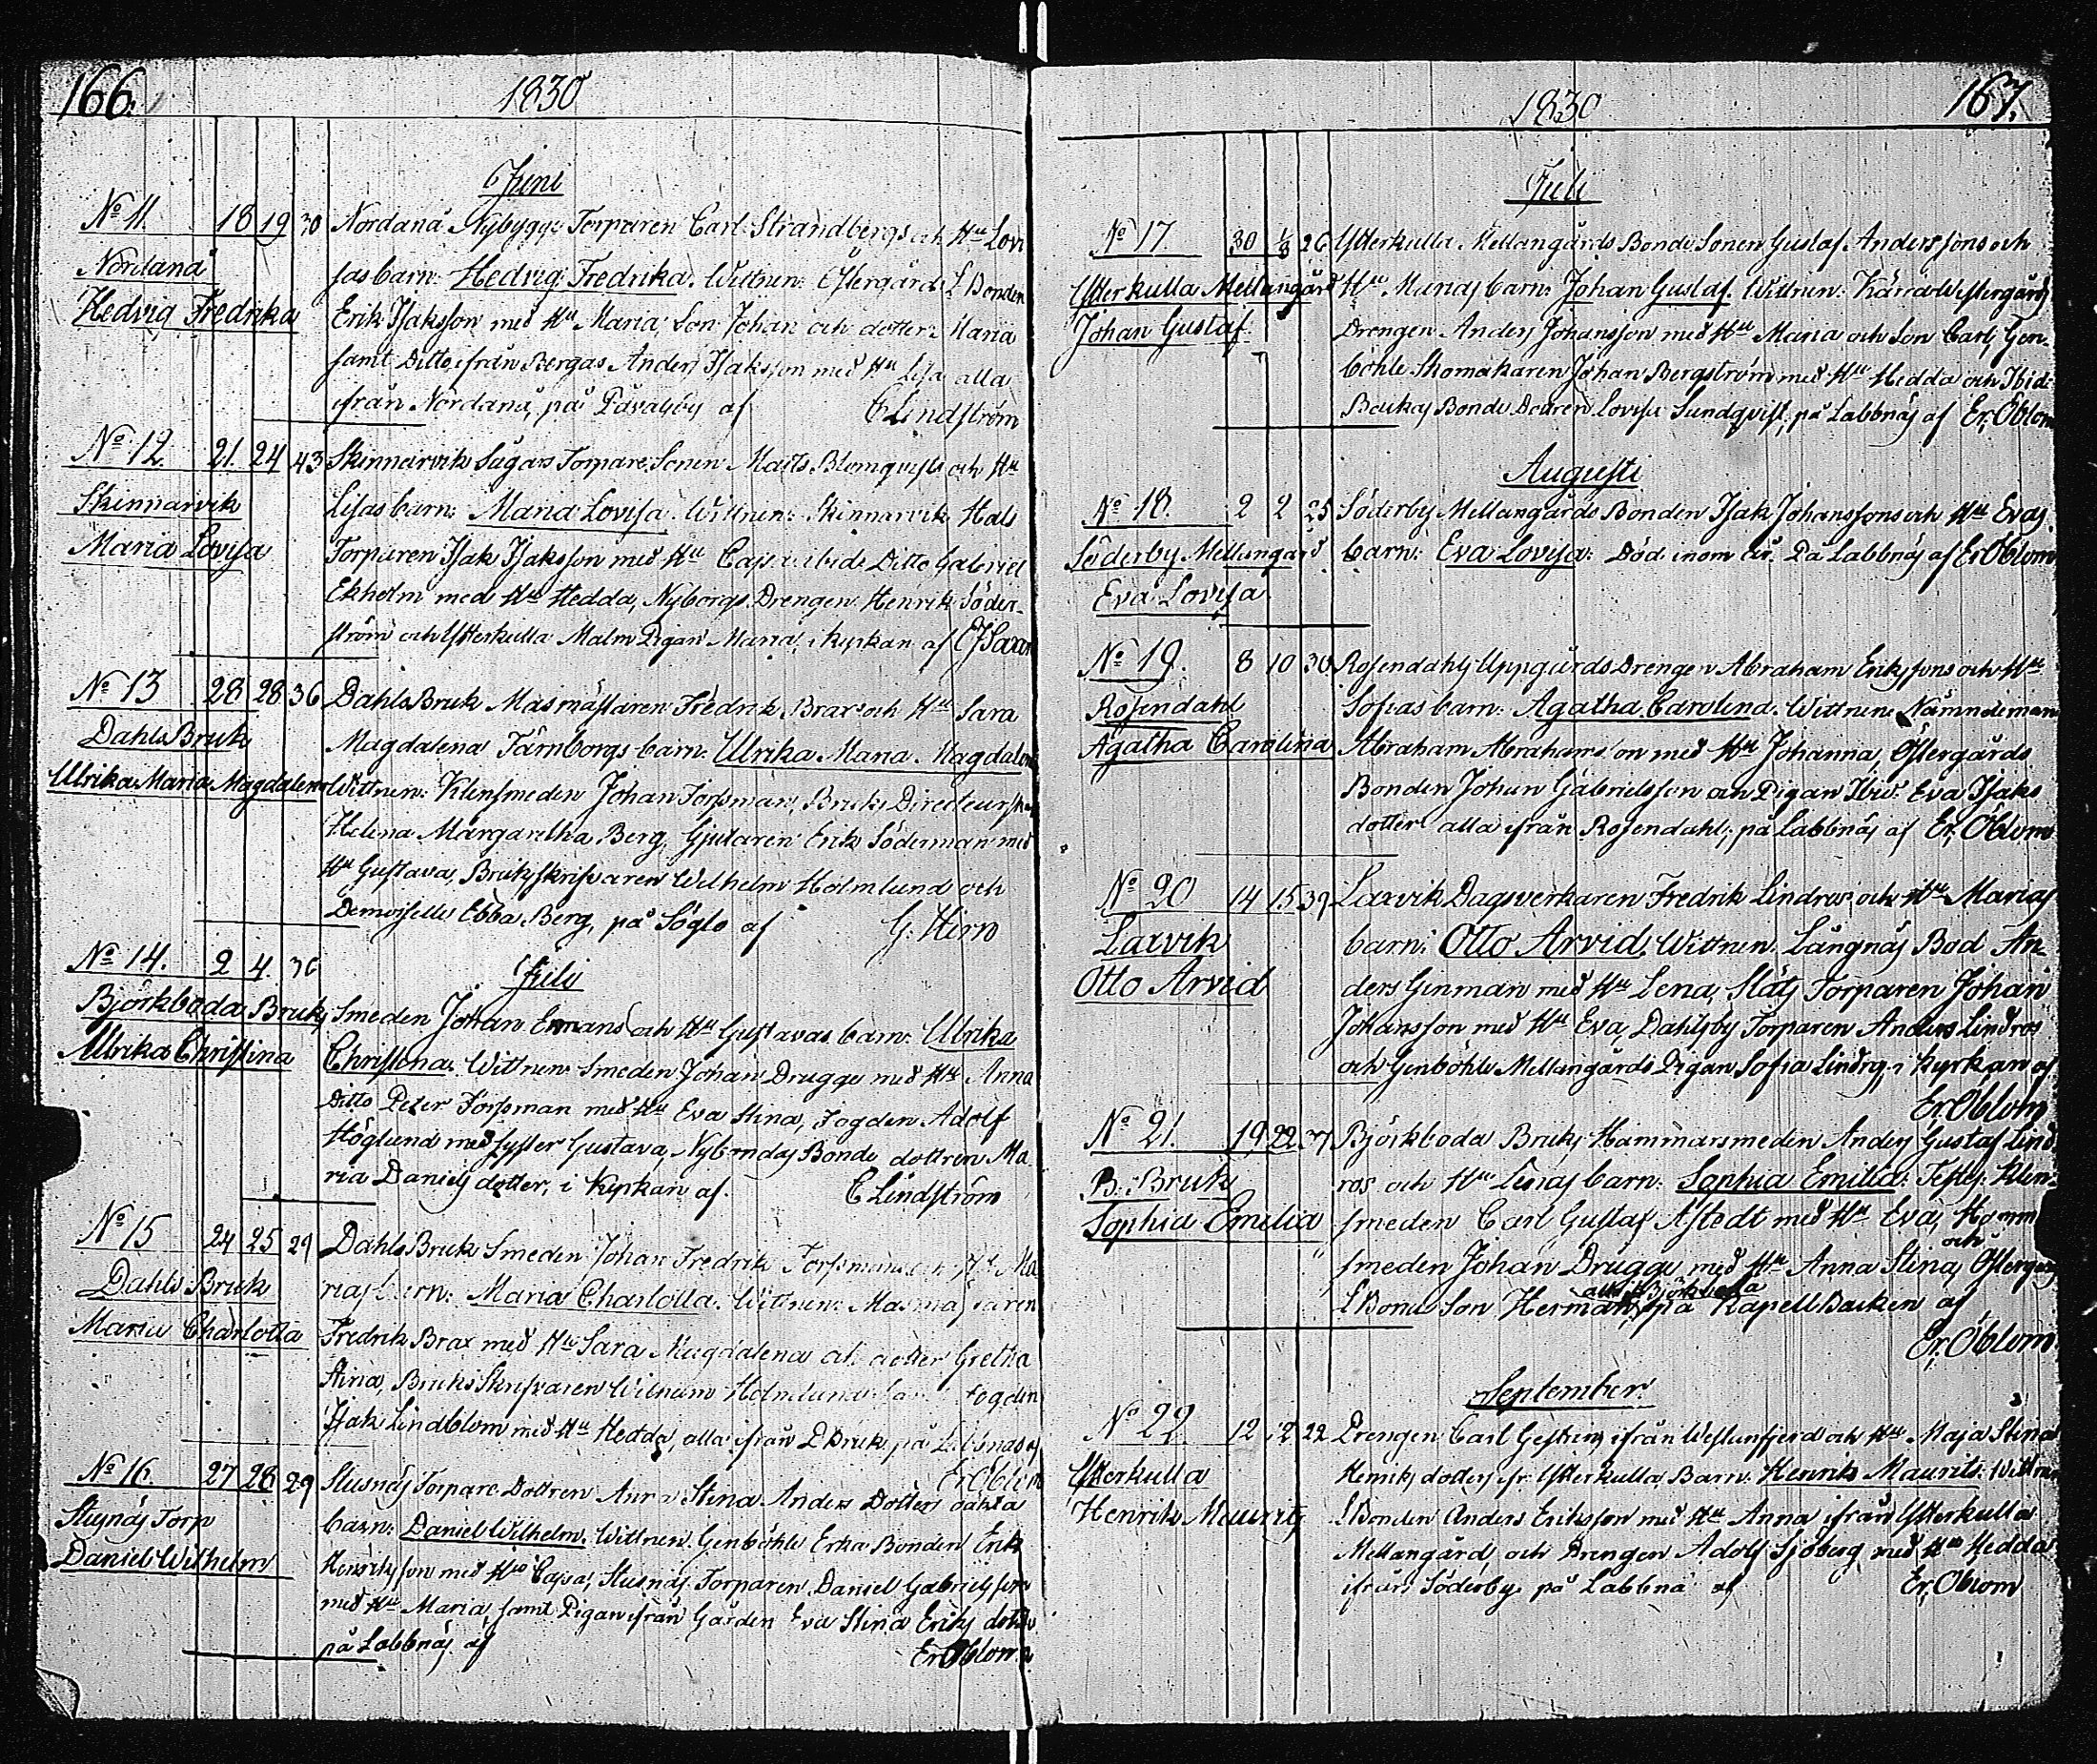 166.
1830
Juni
No 11. 18 19 30 Nordanå Nybygg: Torparen Carl Strandbergs och Hu Lovi
Nordanå
sas barn: Hedvig Fredrika. Wittnen: Östergårds L Bonden
Hedvig Fredrika
Erik Isaksson med Hu Maria Son Johan och dotter Maria
samt Ditto ifrån Bergas Anders Isaksson med Hu Lisa alla
ifrån Nordanå, på Påvalsby af C Lindström
No 12. 21. 24 43 Skinnarvik Sågars Torpare Sonen Matts Blomqvists och Hu
Skinnarvik
Lisas barn: Maria Lovisa. Wittnen: Skinnarvik Hals
Maria Lovisa
Torparen Isak Isaksson med Hu Cajsa ibid: Ditto Gabriel
Ekholm med Hu Hedda, Nyborgs Drengen Henrik Söder-
ström och Ytterkulla Malm Pigan Maria, i kyrkan af
No 13 28 28 36 Dahls Bruk Masmästaren Fredrik Brax och Hu Sara
Dahls Bruk
Magdalena Tärnborgs barn: Ulrika Maria Magdalena
Ulrika Maria Magdalena
Wittnen: Klensmeden Johan Forsman, Bruks Directeurskan
Helena Margaretha Berg, Gjutaren Erik Söderman med
Hu Gustava, Bruksskrifvaren Wilhelm Holmlund och
Demoiselle Ebba Berg, på Söglo af G. Hirn
No 14. 2 4. 36
Juli
Björkboda Bruks
Smeden Johan Enmans och Hu Gustavas barn: Ulrika
Ulrika Christina
Christina. Wittnen: Smeden Johan Drugge med Hu Anna
Ditto Peter Forsman med Hu Eva Stina, Fogden Adolf
Höglund med syster Gustava, Nybondas Bonde dottren Ma
ria Daniels dotter, i Kyrkan af C Lindström
No 15 24 25 29 Dahls Bruk Smeden Johan Fredrik Forsmans och Hu Ma
Dahls Bruk
rias barn: Maria Charlotta. Wittnen: Masmästaren
Maria Charlotta
Fredrik Brax med Hu Sara Magdalena och dotter Gretha
Stina, Bruks Skrifvaren Wilhelm Holmlund samt Fogden
Isak Lindblom med Hu Hedda, alla ifrån D Bruk på Labbnäs af
Er. Öblom
No 16. 27 28 29 Stusnäs Torpare Dottren Anna Stina Anders Dotters oäkta
Stusnäs Torp
barn: Daniel Wilhelm. Wittnen: Genböhle Erka Bonden Erik
Daniel Wilhelm
Henriksson med Hu Cajsa, Stusnäs Torparen Daniel Gabrielsson
med Hu Maria, samt Pigan ifrån Gården Eva Stina Eriks dotter
på Labbnäs af Er. Öblom
1830
167.
Juli
No 17. 30 1/8 26 Ytterkulla Mellangårds Bonde Sonen Gustaf Anderssons och
Ytterkulla Mellangård
Hu Marias barn: Johan Gustaf. Wittnen: Kärra Westergårds
Johan Gustaf
Drengen Anders Johansson med Hu Maria och Son Carl, Gen-
böhle Skomakaren Johan Bergström med Hu Hedda och Ibid:
Bonde Lovisa Sundqvist, på Labbnäs af Er. Öblom
Augusti
No 18. 2 2 25 Söderby Mellangårds Bonden Isak Johanssons och Hu Evas
Söderby Mellangård
barn: Eva Lovisa. Död inom år. På Labbnäs af Er. Öblom
Eva Lovisa
No 19. 8 10 30 Rosendahls Uppgårds Drengen Abraham Erikssons och Hu
Rosendahl
Sofias barn: Agatha Carolina. Wittnen: Nämndeman
Agatha Carolina
Abraham Abrahamsson med Hu Johanna, Östergårds
Bonden Johan Gabrielsson och Pigan Ibid: Eva Isaks
dotter alla ifrån Rosendahl, på Labbnäs af Er. Öblom
No 20 14 15 39 Laxvik Dagsverkaren Fredrik Lindros och Hu Marias
Laxvik
barn: Otto Arvid. Wittnen: Långnäs Bod An-
Otto Arvid
ders Genman med Hu Lena, Släts Torparen Johan
Johansson med Hu Eva, Dahlsby Torparen Anders Lindros
och Genböhle Mellangårds Pigan Sofia Lindrs, i kyrkan af
Er. Öblom
No 21. 19 22 37 Björkboda Bruks Hammarsmeden Anders Gustaf Lind
B. Bruk
ros och Hu Lenas barn: Sophia Emilia. Testes: Klen-
Sophia Emilia
smeden Carl Gustaf Åstedt med Hu Eva, Hamm
smeden Johan Drugge med Hu Anna Stina, och Östergårds
L Bonde Son Herman, alla i Björkboda på Kapell Backen af
Er. Öblom
September
No 22. 12 12 22 Drengen Carl Gestrins ifrån Westanfjerd och Hu Maja Stina
Ytterkulla
Henriks doters fr. Ytterkulla Barn: Henrik Maurits. Wittnen
Henrik Maurits
L Bonden Anders Eriksson med Hu Anna ifrån Ytterkulla
Mellangård, och Drengen Adolf Sjöberg med Hu Hedda
ifrån Söderby på Labbnäs af Er. Öblom